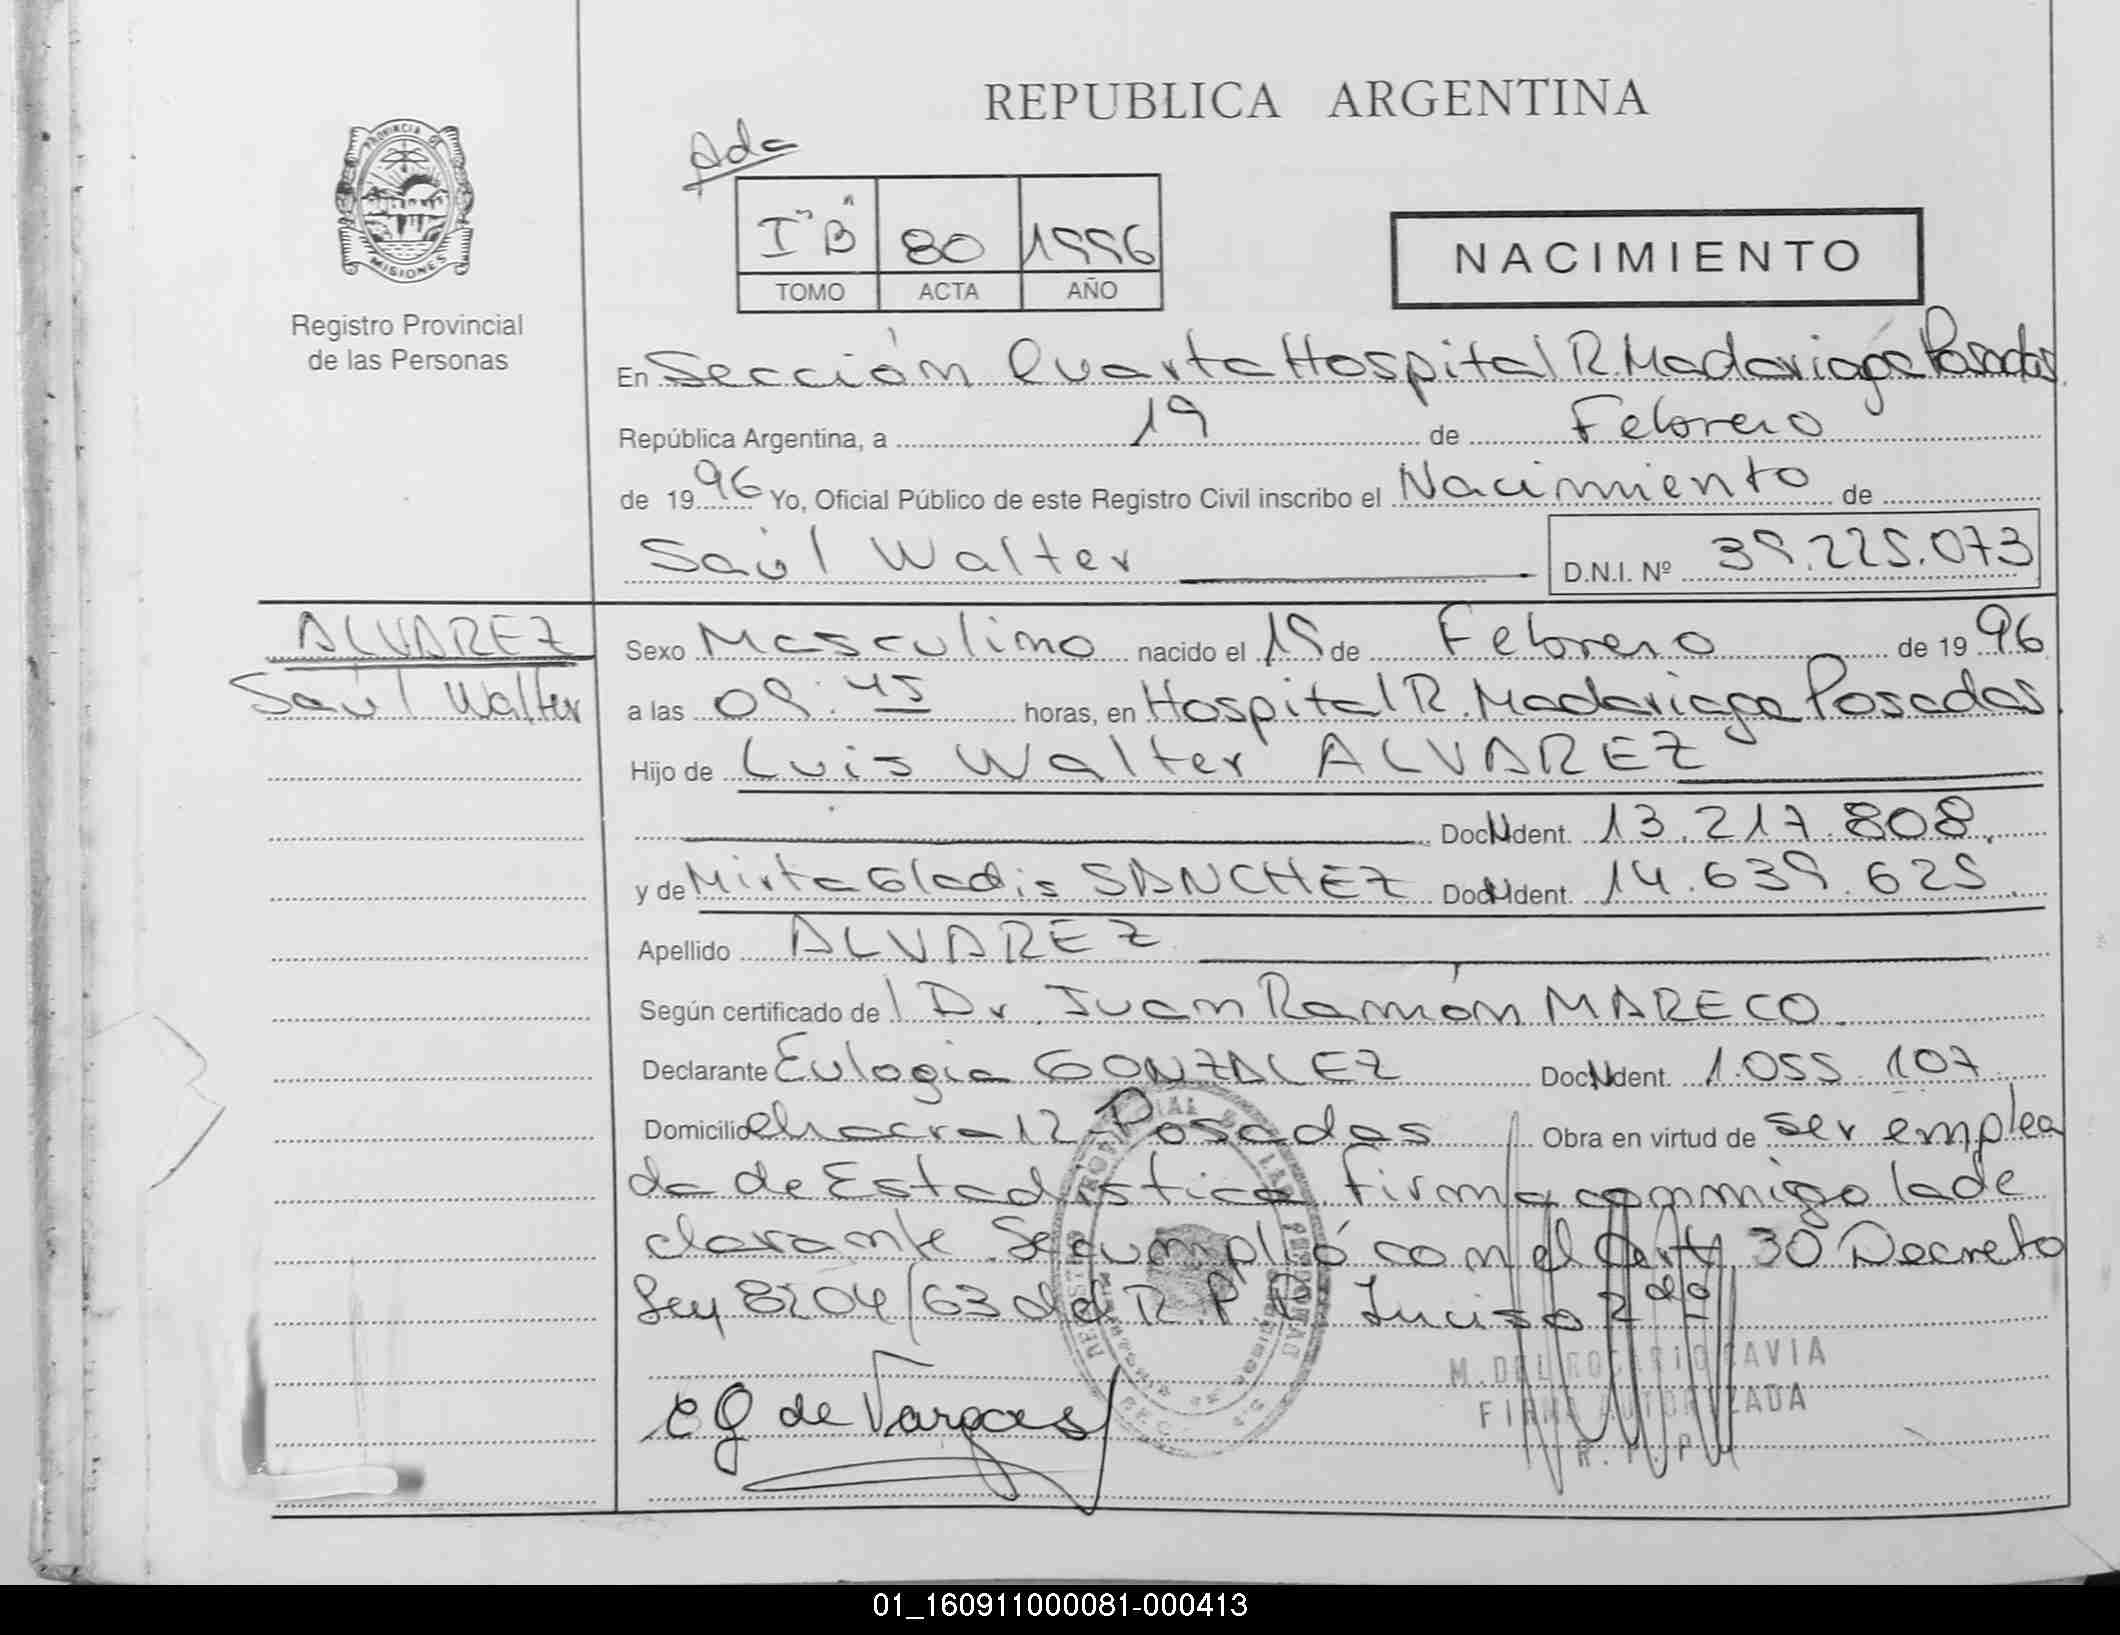 REPUBLICA ARGENTINA
Ada
PROVINCIA DE
MISIONES
Registro Provincial
de las Personas
I "B" 80 1996
TOMO ACTA AÑO
NACIMIENTO
En Sección Cuarta Hospital R. Madariaga Posadas
República Argentina, a 19 de Febrero
de 1996 Yo, Oficial Público de este Registro Civil inscribo el Nacimiento de
Saúl Walter D.N.I. Nº 39.225.073
ALVAREZ
Saúl Walter
Sexo Masculino nacido el 19 de Febrero de 1996
a las 09:45 horas, en Hospital R. Madariaga Posadas.
Hijo de Luis Walter ALVAREZ
Doc. N Ident. 13.217.808.
y de Mirta Gladis SANCHEZ Doc. N Ident. 14.639.625.
Apellido ALVAREZ
Según certificado del Dr. Juan Ramón MARECO
Declarante Eulogia GONZALEZ Doc. N Ident. 1.055.107
Domicilio chacra 12 Posadas Obra en virtud de ser emplea
da de Estadística Firma conmigo la de
clarante. Se cumplió con el Art 30 Decreto
Ley 8204/63 del R.P.P. Inciso 2do
M. DEL ROSARIO SAVIA
FIRMA AUTORIZADA
R. P. P.
e G de Vargas
01_160911000081-000413